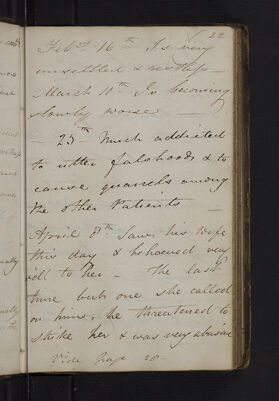 22
Feby 16th Is very
unsettled &
March 11th Is becoming
slowly worse —
— 25th Much addicted
to utter falshoods & to
cause quarrels among
the other Patients —
April 8th Saw his wife
this day & behaved very
ill to her — The last
time but one she called
on him, he threatened to
strike her & was very abusive
Vide page 28.